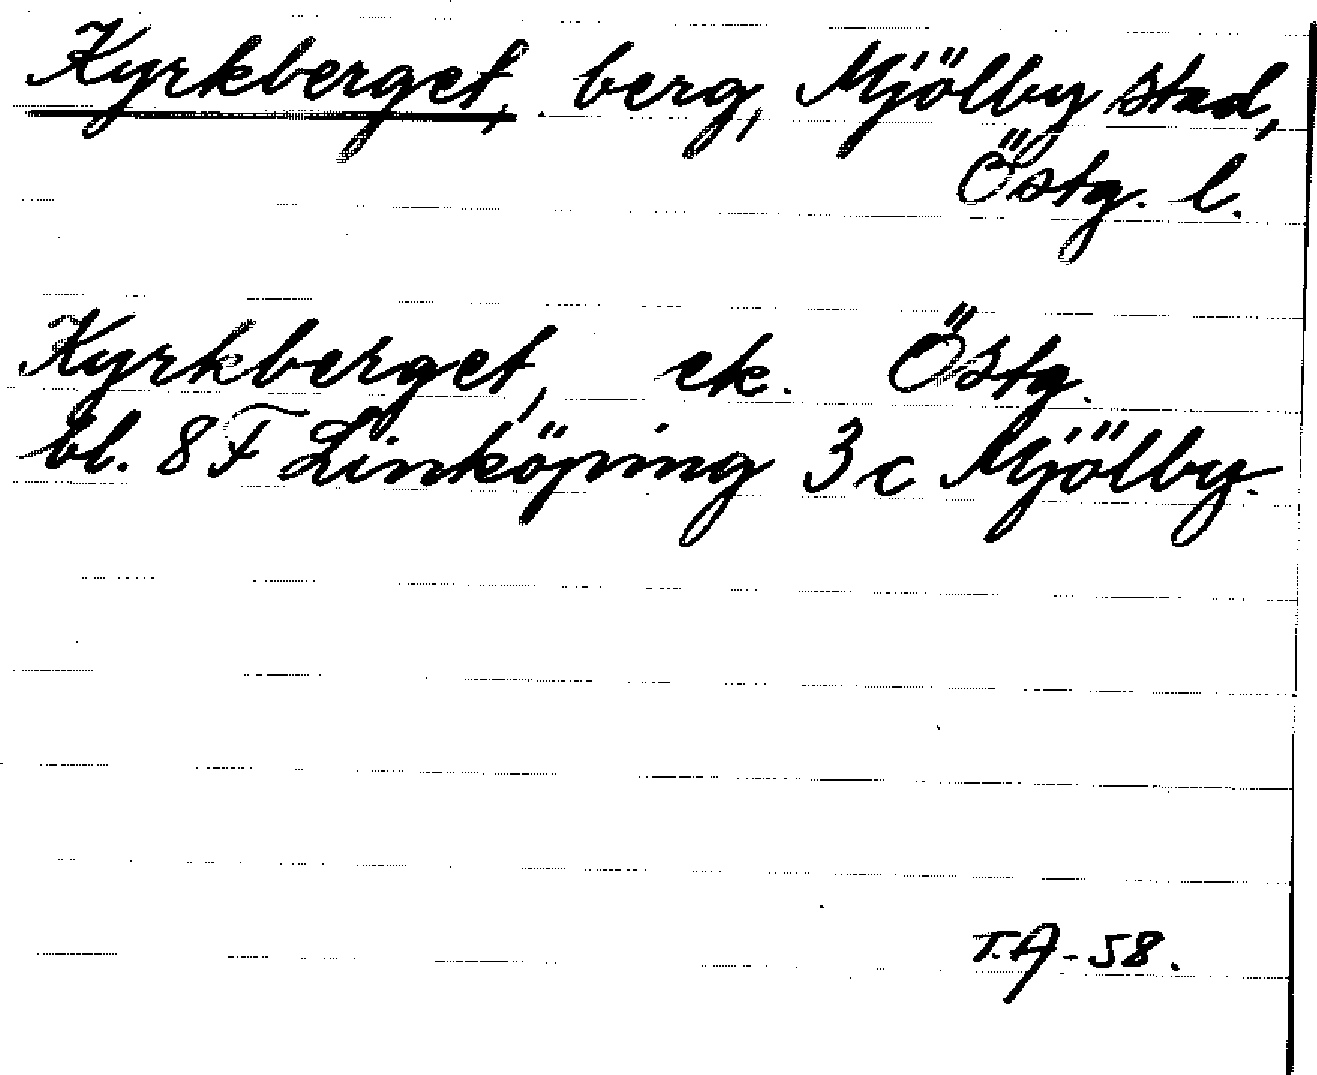 Kyrkberget, berg, Mjölby stad,
Östg. l.
Kyrkberget, ek. Östg.
bl. 8 F Linköping 3 c Mjölby.
T.A-58.